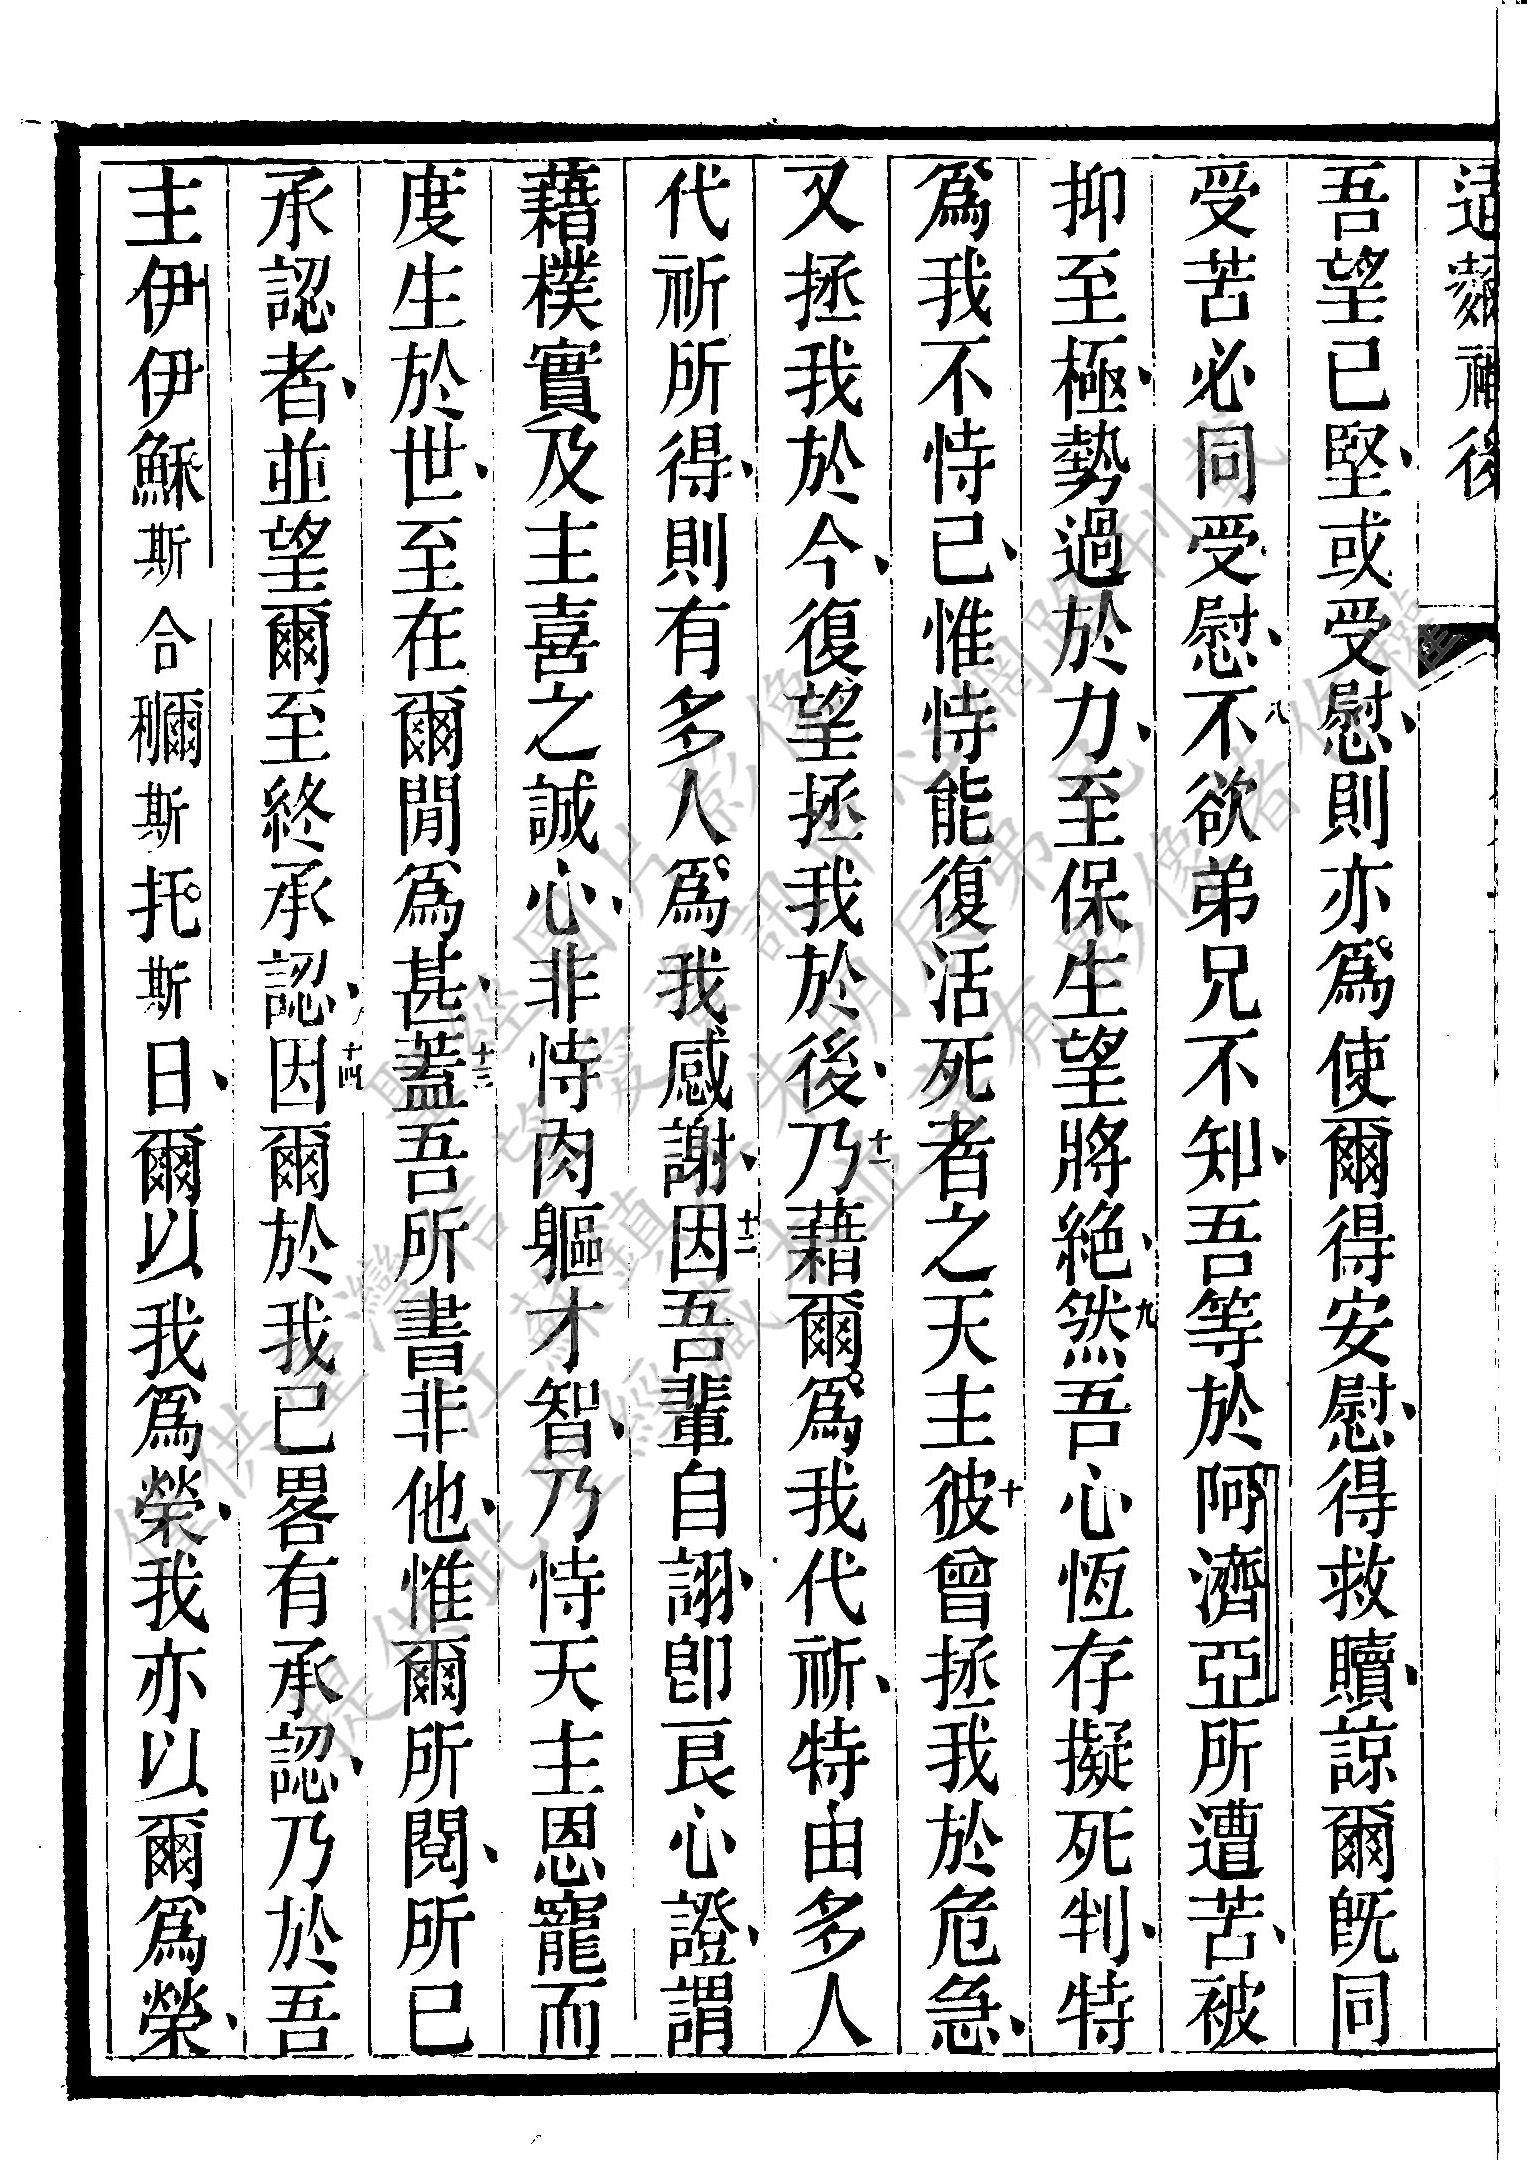 吾望已堅、或受慰、則亦爲使爾得安慰、得救贖、諒爾旣同
受苦必同受慰、八不欲弟兄不知、吾等於阿濟亞所遭苦、被
抑至極、勢過於力、至保生望將絶、九然吾心恆存擬死判、特
爲我不恃己、惟恃能復活死者之天主、十彼曾拯我於危急、
又拯我於今、復望拯我於後、十一乃藉爾爲我代祈、特由多人
代祈所得、則有多人爲我感謝、十二因吾輩自詡、卽良心證、謂
藉樸實及主喜之誠心、非恃肉軀才智、乃恃天主恩寵而
度生於世、至在爾閒爲甚、十三蓋吾所書非他、惟爾所閱、所已
承認者、並望爾至終承認、十四因爾於我已畧有承認、乃於吾
主伊伊穌斯合穪斯托斯日、爾以我爲榮、我亦以爾爲榮、